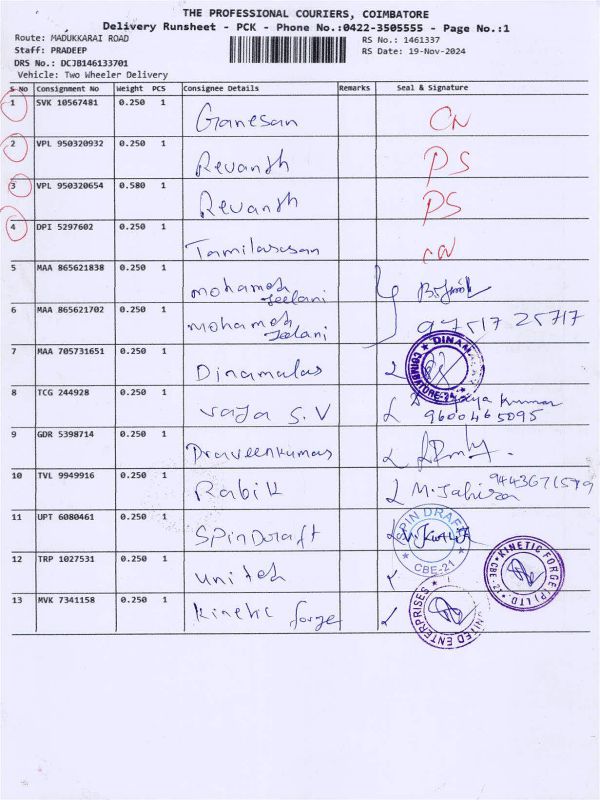 THE PROFESSIONAL COURIERS, COIMBATORE
Delivery Runsheet - PCK - Phone No.:0422-3505555 - Page No.:1
Route: MADUKKARAI ROAD RS No.: 1461337
Staff: PRADEEP RS Date: 19-Nov-2024
DRS No.: DCJB146133701
Vehicle: Two Wheeler Delivery
S No Consignment No Weight PCS Consignee Details Remarks Seal & Signature
1 SVK 10567481 0.250 1 Ganesan CN
2 VPL 950320932 0.250 1 Revanth PS
3 VPL 950320654 0.580 1 Revanth PS
4 DPI 5297602 0.250 1 Tamilarasan CN
5 MAA 865621838 0.250 1 Mohamed Jeelani
6 MAA 865621702 0.250 1 Mohamed Jeelani 97517 25717
7 MAA 705731651 0.250 1 Dinamalas DINAMALAR COIMBATORE-24
8 TCG 244928 0.250 1 Vaja S.V Kumar
9600465095
9 GDR 5398714 0.250 1 Praveenkumar
10 TVL 9949916 0.250 1 Rabik M. 9443671579
11 UPT 6080461 0.250 1 SPinDraft SPIN DRAFT CBE-21
12 TRP 1027531 0.250 1 United KINETIC FORGE (P) LTD. CBE-21
13 MVK 7341158 0.250 1 Kinetic forge UNITED ENTERPRISES